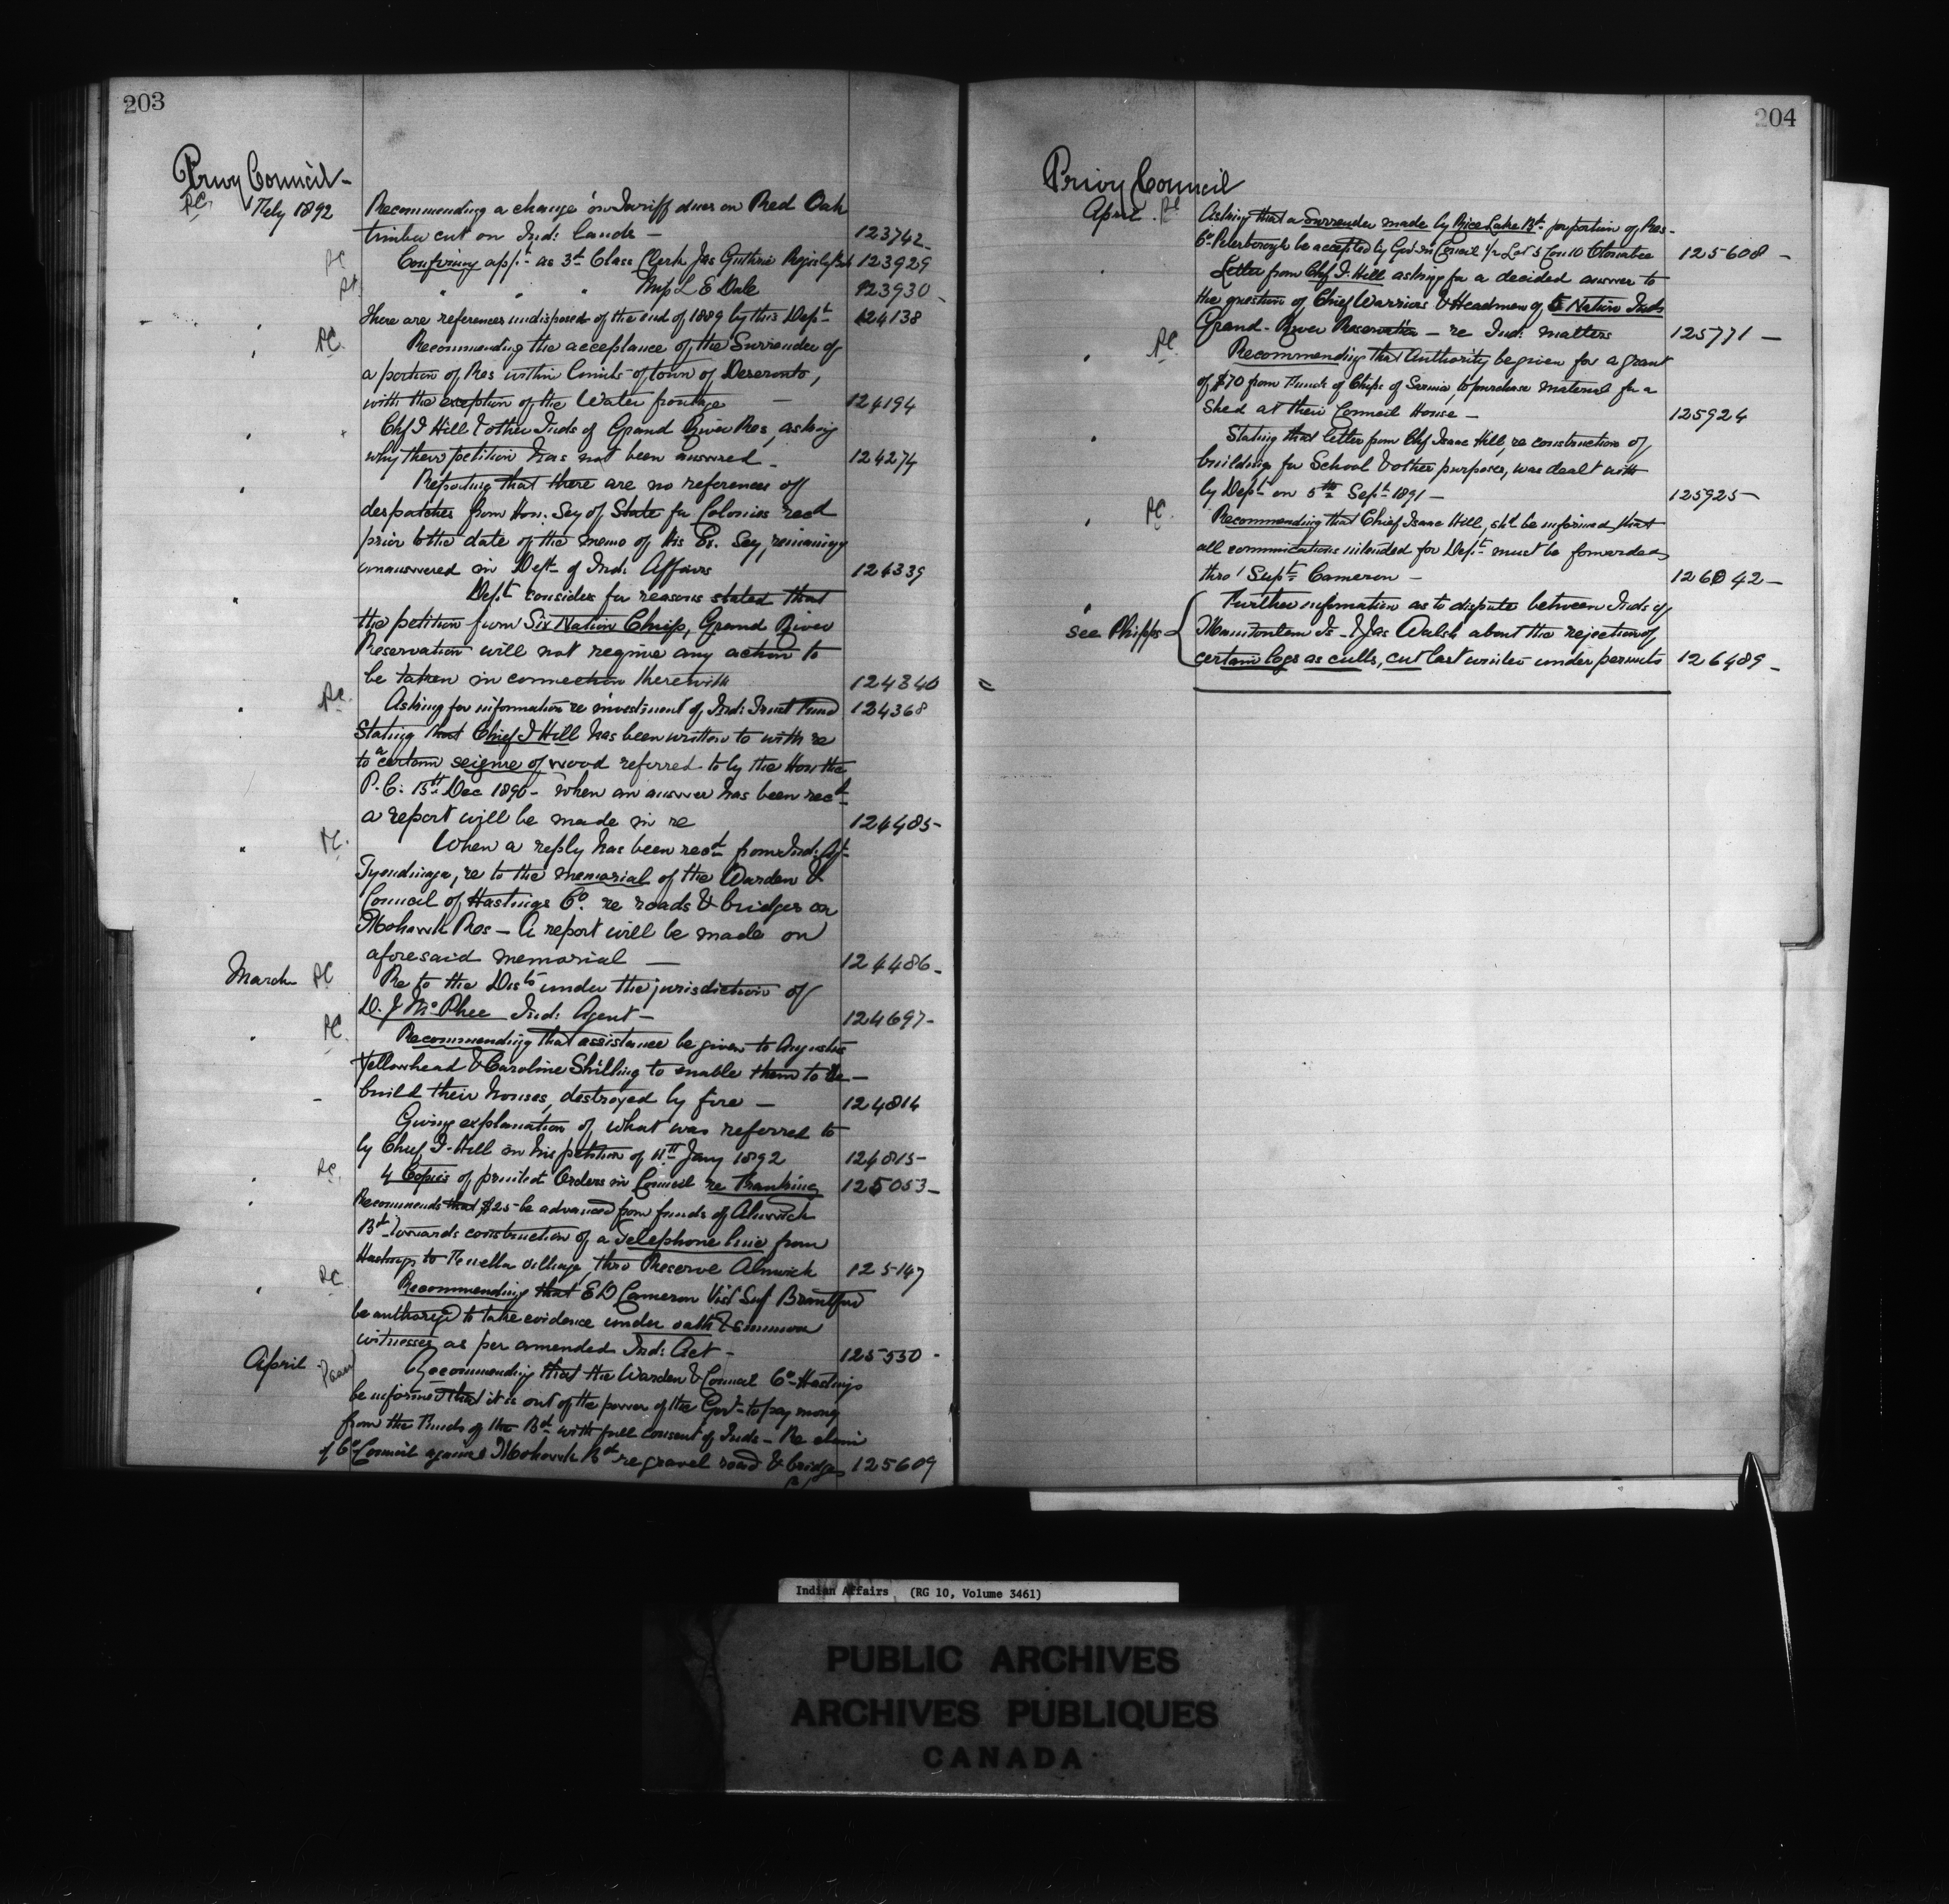 203
Privy Council -
PC Feby 1892 Recommending a change in Tariff dues on Red Oak
timber cut on Ind: Lands - 123742
PC Confirming app't as 3rd Class Clerk Jas Guthrie 123929
PC " " " Miss L E Dale 123930
There are references undisposed of the end of 1889 by this Dept 124138
PC Recommending the acceptance of the Surrender of
a portion of Res within limits of town of Deseronto,
with the exception of the Water frontage - 124194
Chf I Hill & other Inds of Grand River Res, asking
why their petition has not been answered - 124274
Reporting that there are no references of
despatches from Hon. Secy of State for Colonies recd
prior to the date of the memo of His Ex. Secy, remaining
unanswered in Dept of Ind: Affairs 124339
Dept considers for reasons stated that
the petition from Six Nation Chiefs, Grand River
Reservation will not require any action to
be taken in connection therewith 124340
PC Asking for information re investment of Ind: Trust Fund 124368
Stating that Chief I Hill has been written to with re
to a certain seizure of wood referred to by the Hon the
P.C. 15th Dec 1890 - when an answer has been recd
a report will be made in re 124485-
PC. When a reply has been recd from Ind: Agt
Tyendinaga, re to the memorial of the Warden &
Council of Hastings Co. re roads & bridges on
Mohawk Res - A report will be made on
aforesaid memorial - 124486-
March PC Re to the Dists under the jurisdiction of
D. J McPhee Ind: Agent - 124697-
PC Recommending that assistance be given to Augustus
Yellowhead & Caroline Shilling to enable them to Re-
build their houses, destroyed by fire - 124814
Giving explanation of what was referred to
by Chief I. Hill in his petition of 11th Jany 1892 124815-
PC. 4 Copies of printed Orders in Council re Franking 125053-
Recommends that $25 be advanced from funds of Alnwick
Bd towards construction of a Telephone line from
Hastings to village, thro Reserve Alnwick 125147
PC Recommending that E D Cameron Visg Supt Brantford
be authorized to take evidence under oath & summon
witnesses as per amended Ind: Act - 125530 -
April Recommending that the Warden & Council Co. Hastings
be informed that it is out of the power of the Govt to pay money
from the Funds of the Bd with full consent of Inds - Re claim
of Co Council against Mohawk Bd re gravel road & bridges 125609
204
Privy Council
April. PC Asking that a Surrender made by Rice Lake Bd for portion of Res -
Co. Peterborough be accepted by Gov in Council 1/2 Lot 5 Con 10 Otonabee 125608 -
Letter from Chf I. Hill asking for a decided answer to
the question of Chief Warriors & Headmen of 6 Nation Inds
Grand River Reservation - re Ind: matters 125771 -
PC. Recommending that Authority be given for a grant
of $70 from Funds of Chips of Sarnia, to purchase material for a
Shed at their Council House - 125924
Stating that letter from Chf Isaac Hill, re construction of
building for School & other purposes, was dealt with
by Dept on 5th Sept 1891 - 125925-
PC. Recommending that Chief Isaac Hill, shd be informed that
all communications intended for Dept must be forwarded
thro' Supt Cameron - 126042-
Further information as to dispute between Inds of
see Phipps Manitoulin Is - & Jas Walsh about the rejection of
certain logs as culls, cut last winter under permits 126489-
Indian Affairs (RG 10, Volume 3461)
PUBLIC ARCHIVES
ARCHIVES PUBLIQUES
CANADA